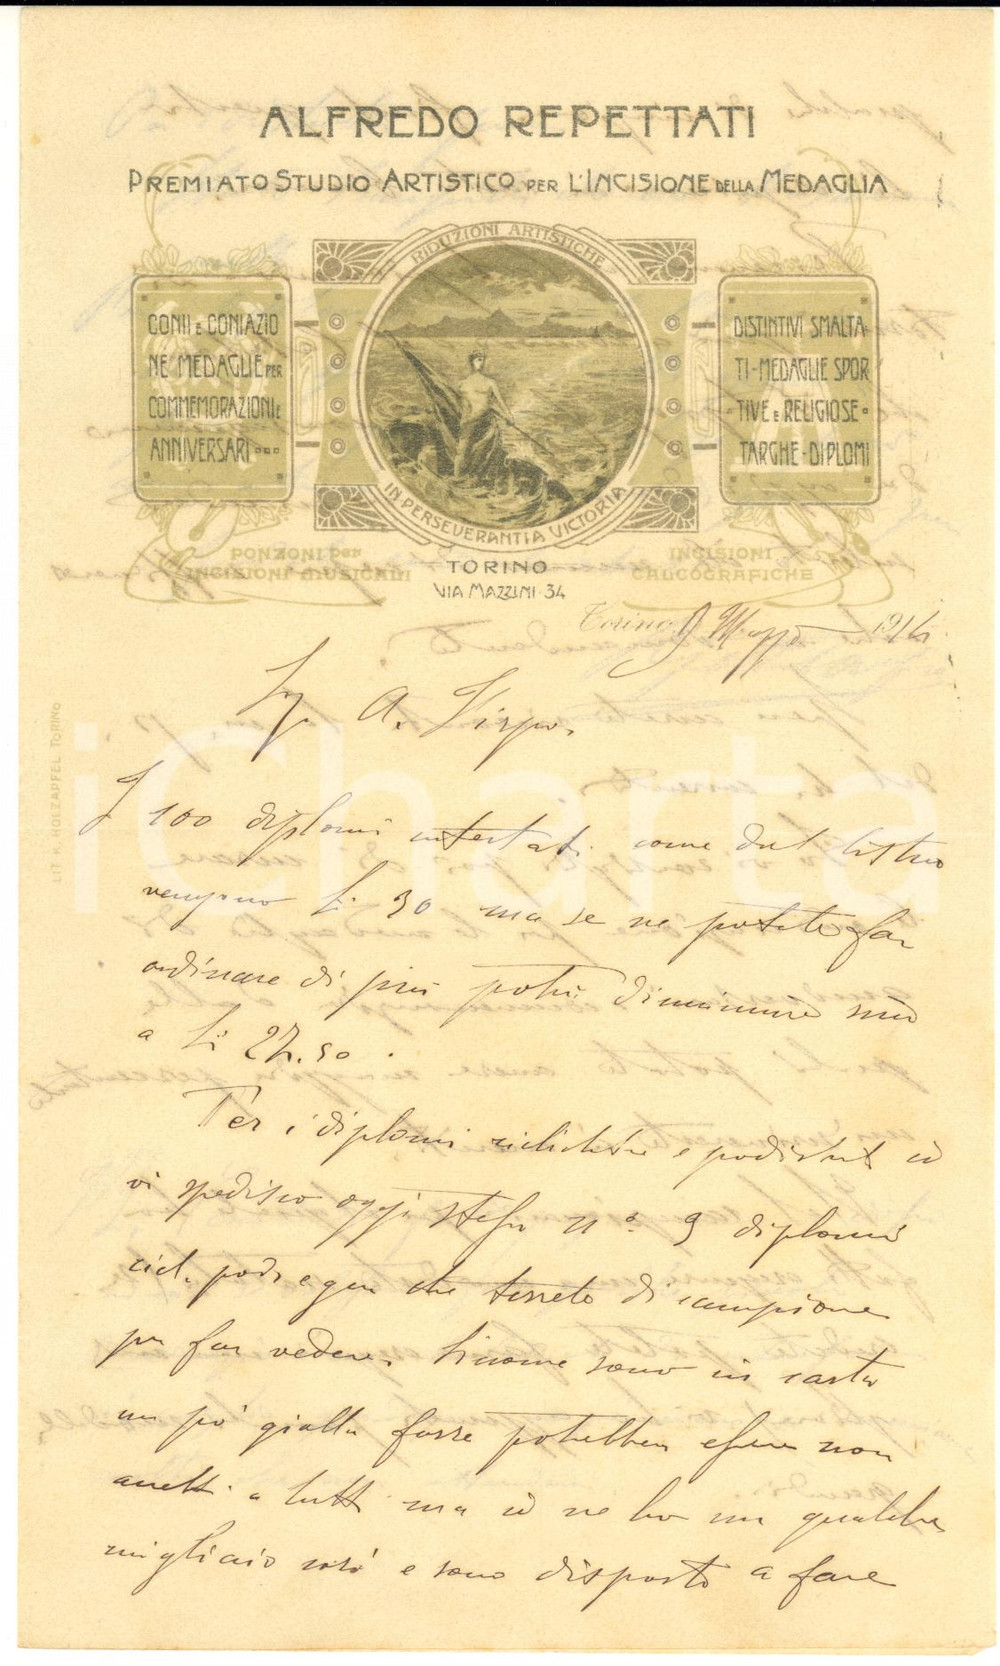 ALFREDO REPETTATI
PREMIATO STUDIO ARTISTICO PER L'INCISIONE DELLA MEDAGLIA
RIDUZIONI ARTISTICHE
CONII E CONIAZIO
NE MEDAGLIE PER
COMMEMORAZIONI E
ANNIVERSARI
DISTINTIVI SMALTA-
TI-MEDAGLIE SPOR
-TIVE E RELIGIOSE-
TARGHE-DIPLOMI
IN PERSEVERANTIA VICTORIA
PONZONI PER
INCISIONI MUSICALI
INCISIONI
CALCOGRAFICHE
TORINO
VIA MAZZINI·34
Torino, 9 Maggio 1914
A.
I 100 diplomi intestati come dal listino
vengono L. 30 ma se ne potete far
ordinare di più potrei diminuire sino
a L. 27.50.
Per i diplomi ciclistici e podisti io
vi spedisco oggi stesso n° 9 diplomi
cicl. pod. e gen che terrete di campione
per far vedere. Siccome sono in carta
un po' gialla forse potrebbero essere non
accetti a tutti ma io ne ho un qualche
migliaio così e sono disposto a fare
LIT. P. HOLZAPFEL TORINO
iCharta